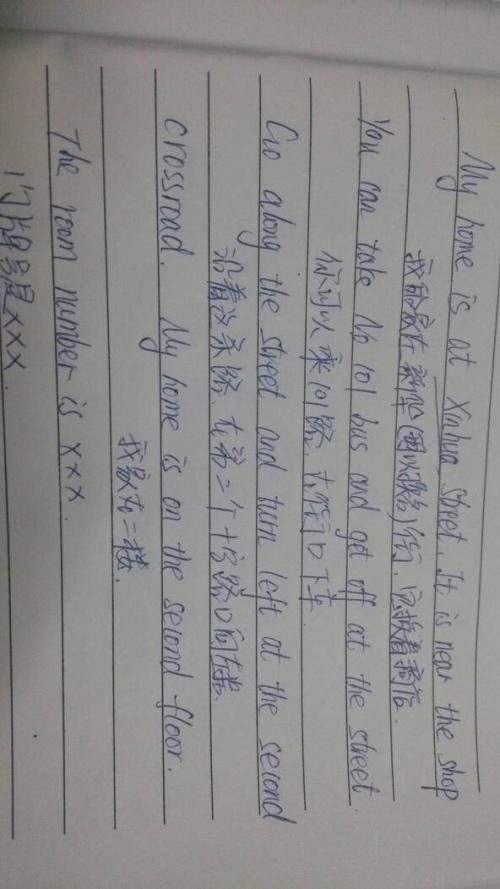 My home is at Xinhua Street. It is near the shop
我的家在新华街,它挨着商店.
You can take No 101 bus and get off at the street.
你可以乘101路,在街口下车
Go along the street and turn left at the second
沿着这条路,在第二个十字路口向左转.
crossroad. My home is on the second floor.
我家在二楼.
The room number is xxx
门牌号是xxx.